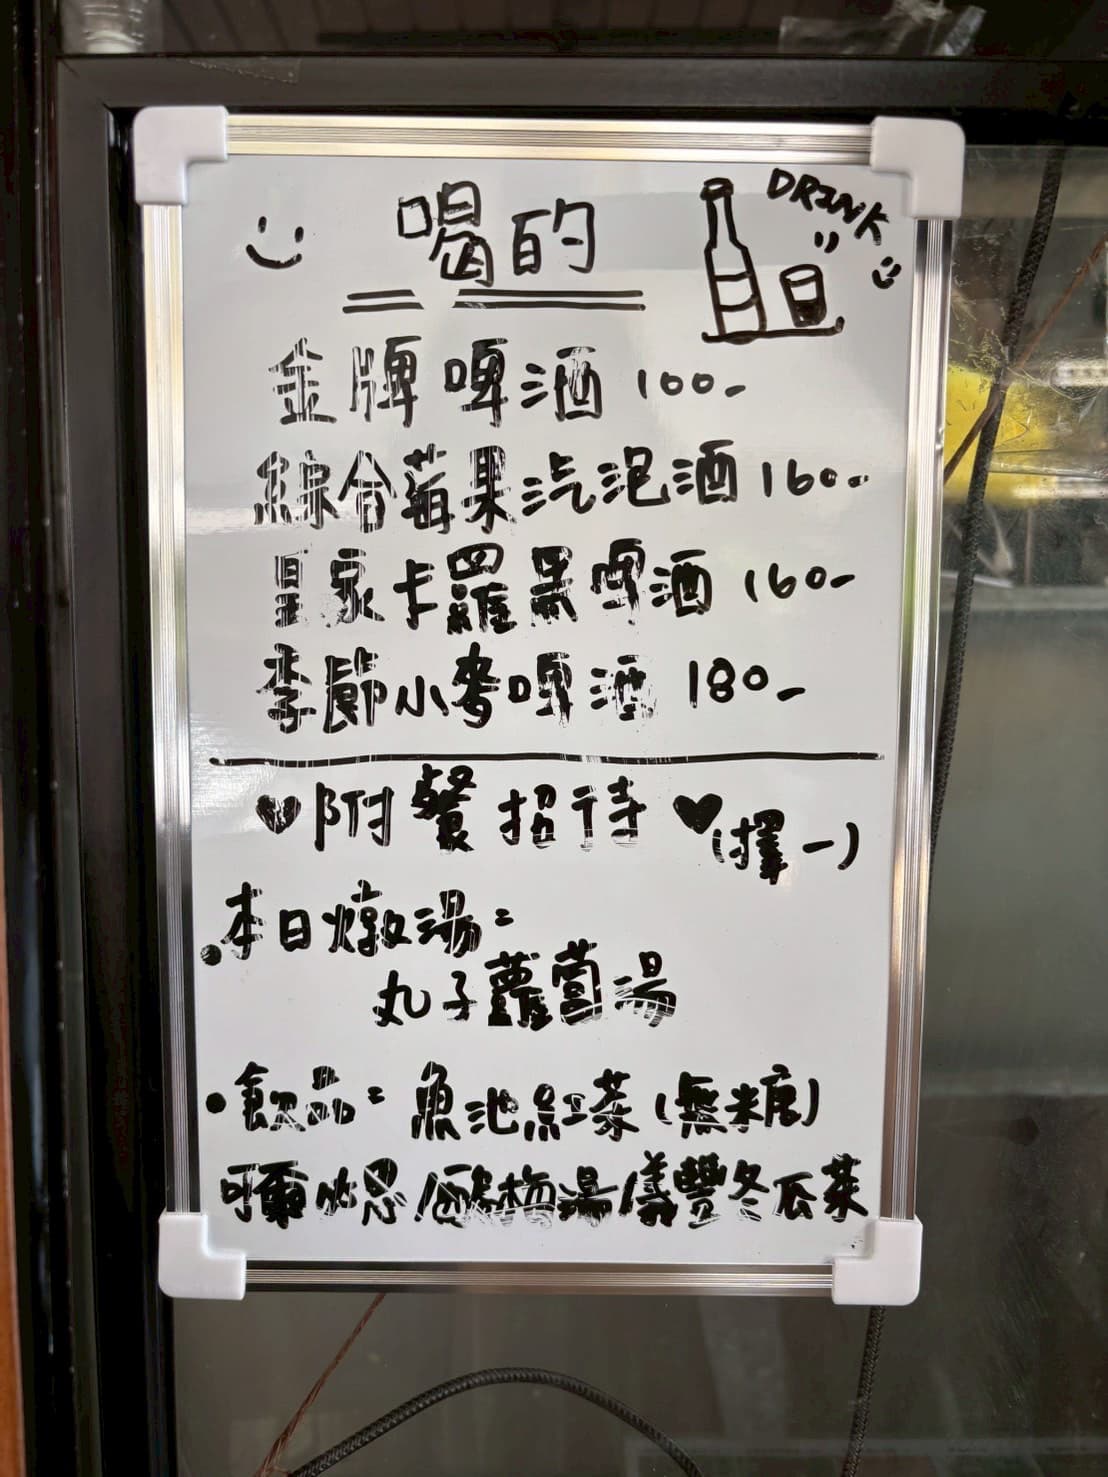 喝的
DRINK
金牌啤酒 100-
綜合莓果汽泡酒 160-
皇家卡羅黑啤酒 160-
季節小麥啤酒 180-
♥附餐招待♥(擇一)
•本日燉湯:
丸子蘿蔔湯
•飲品: 魚池紅茶(無糖)
可爾必思/酸梅湯/義豐冬瓜茶